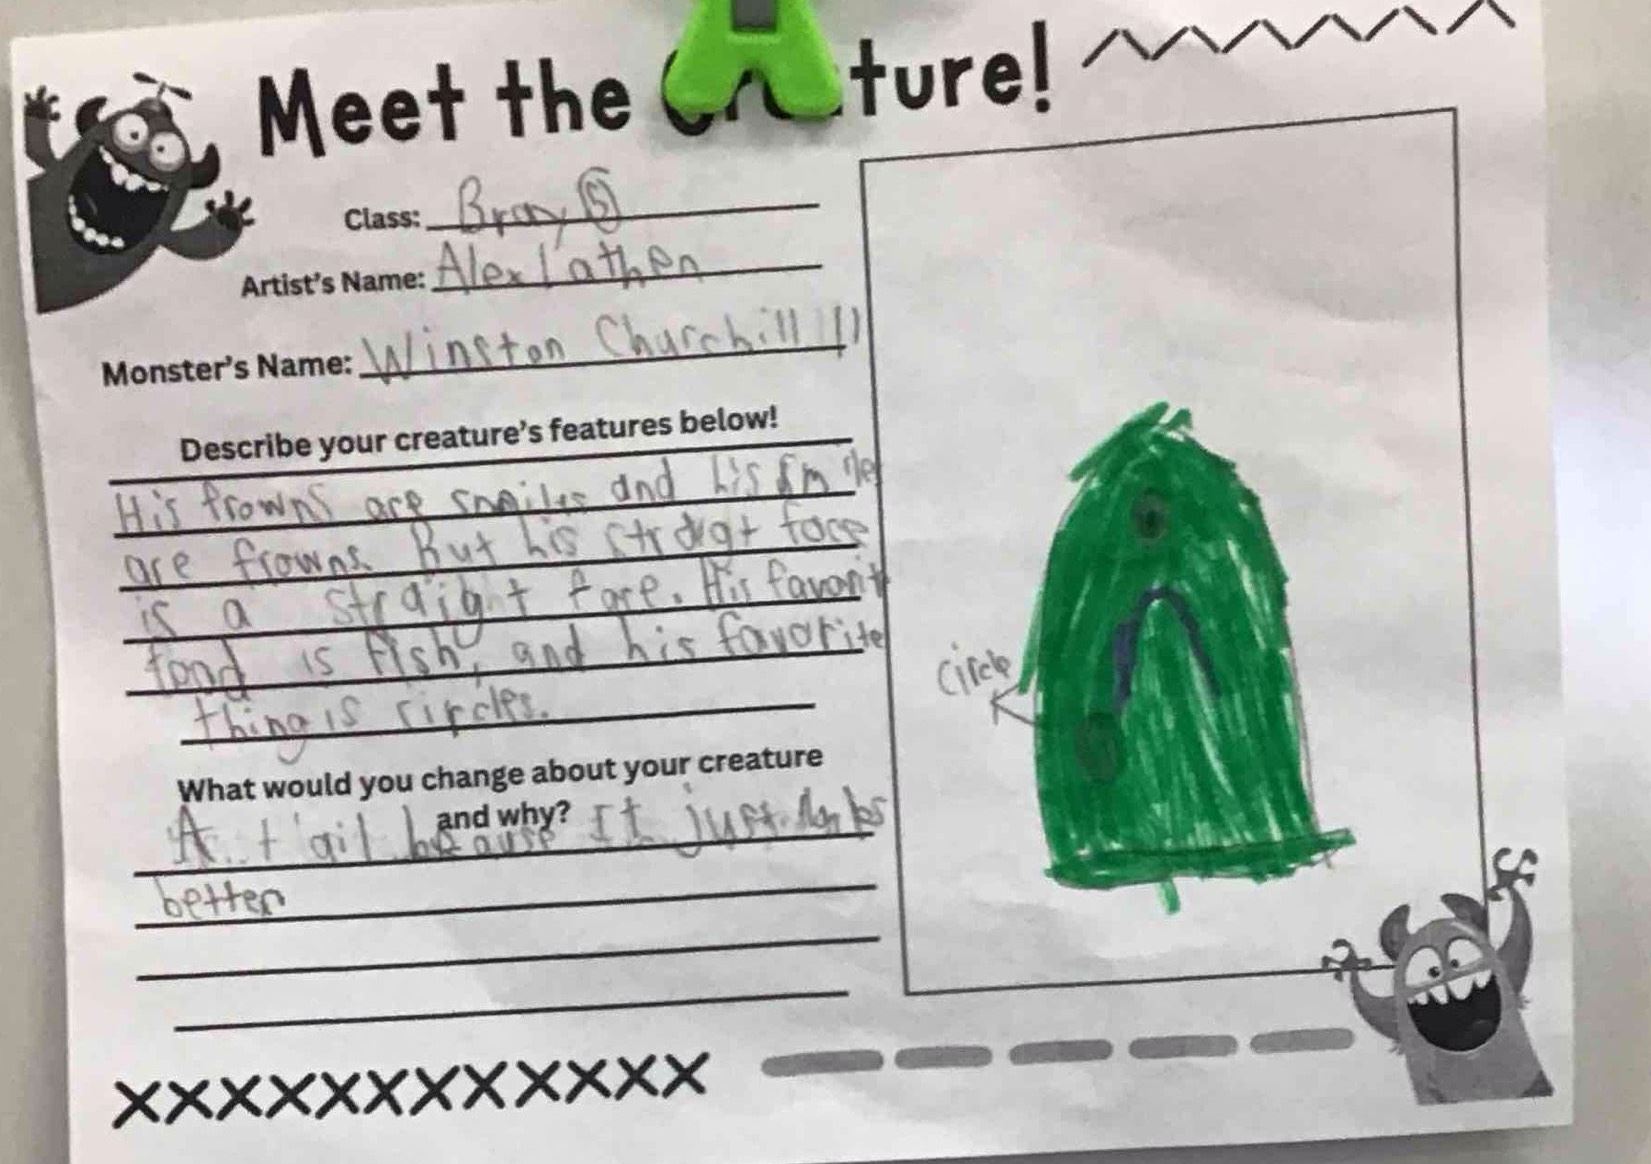 Meet the Creature!
Class: Bray (5)
Artist's Name: Alex Lathen
Monster's Name: Winston Churchill
Describe your creature's features below!
His frowns are smiles and his smiles
are frowns. But his straigt face
is a straight face. His favorit
food is fish, and his favorite
thing is circles.
circle
What would you change about your creature
and why?
A tail because It just looks
better